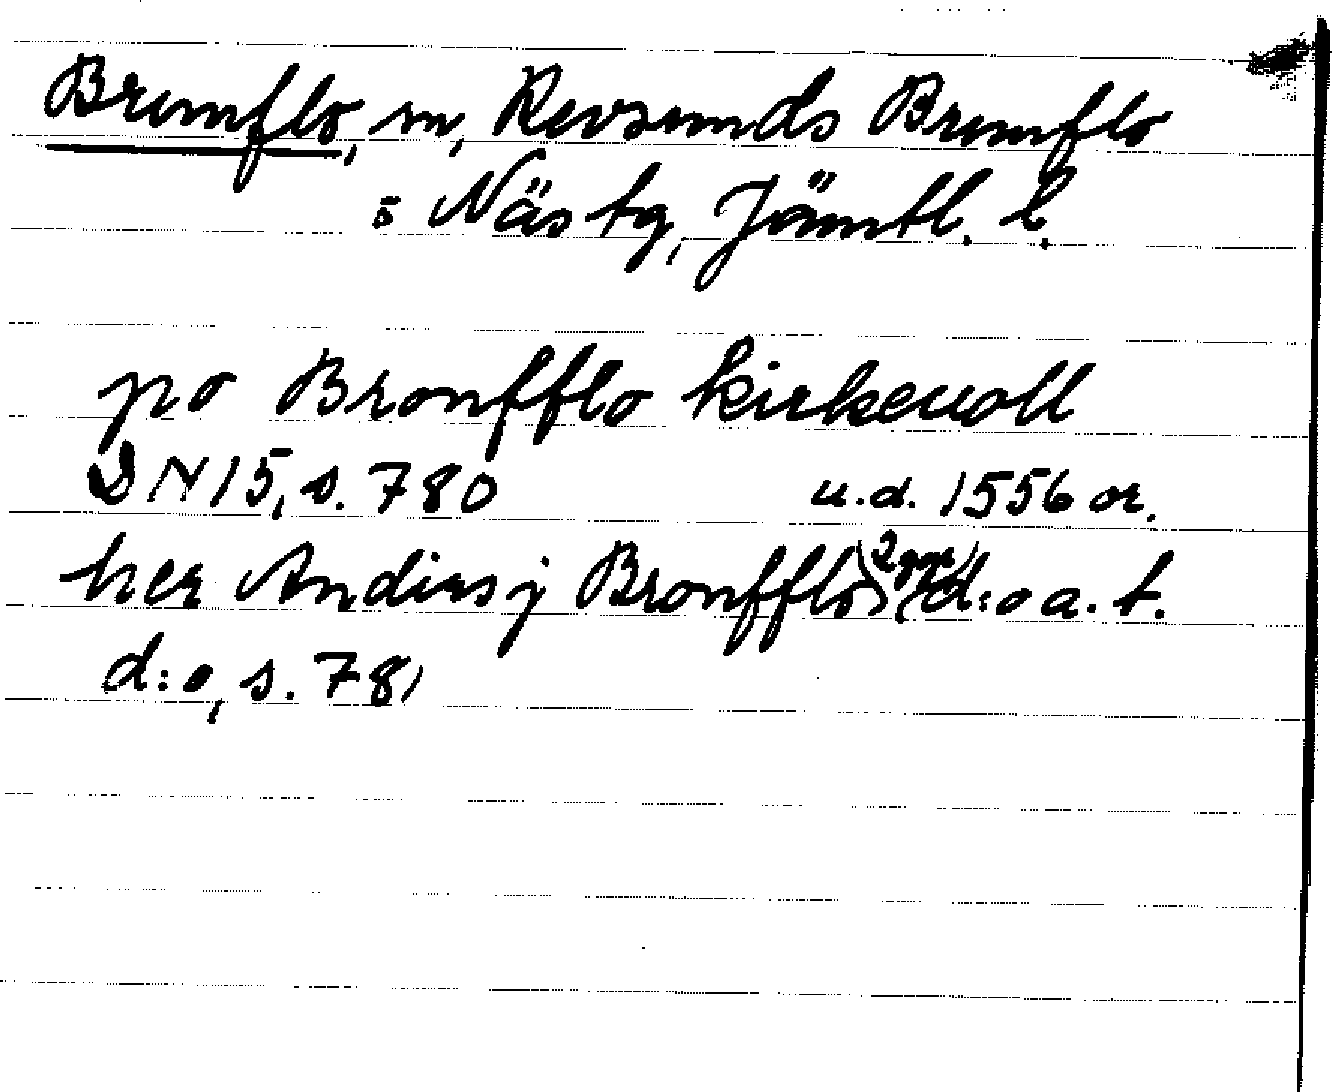 Brunflo, sn, Revsunds Brunflo
o Näs tg, Jämtl. l.
po Bronfflo kirkeuoll
DN 15, s. 780 u.d. 1556 or.
her Anders j Bronfflo (2 ggr) (d:o a. st.
d:o, s. 781